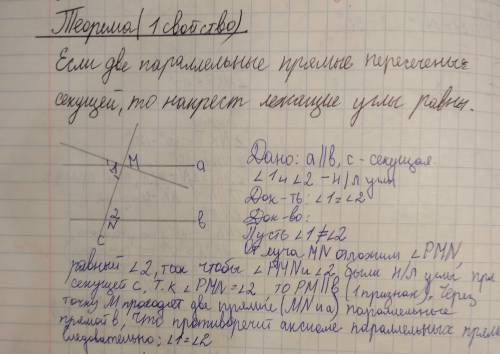 Теорема (1 свойство)
Если две параллельные прямые пересечены
секущей, то накрест лежащие углы равны.
M
a
1
2
в
c
Дано: a∥в, c - секущая
∠1 и ∠2 - н/л углы
Док-ть: ∠1=∠2
Док-во:
Пусть ∠1≠∠2
От луча MN отложим ∠PMN,
равный ∠2, так чтобы ∠PMN и ∠2 были н/л углы при
секущей c, т.к ∠PMN=∠2 то PM∥в (1 признак). Через
точку M проходят две прямые (MN и a) параллельные
прямой в, что противоречит аксиоме параллельных прямых
следовательно: ∠1=∠2